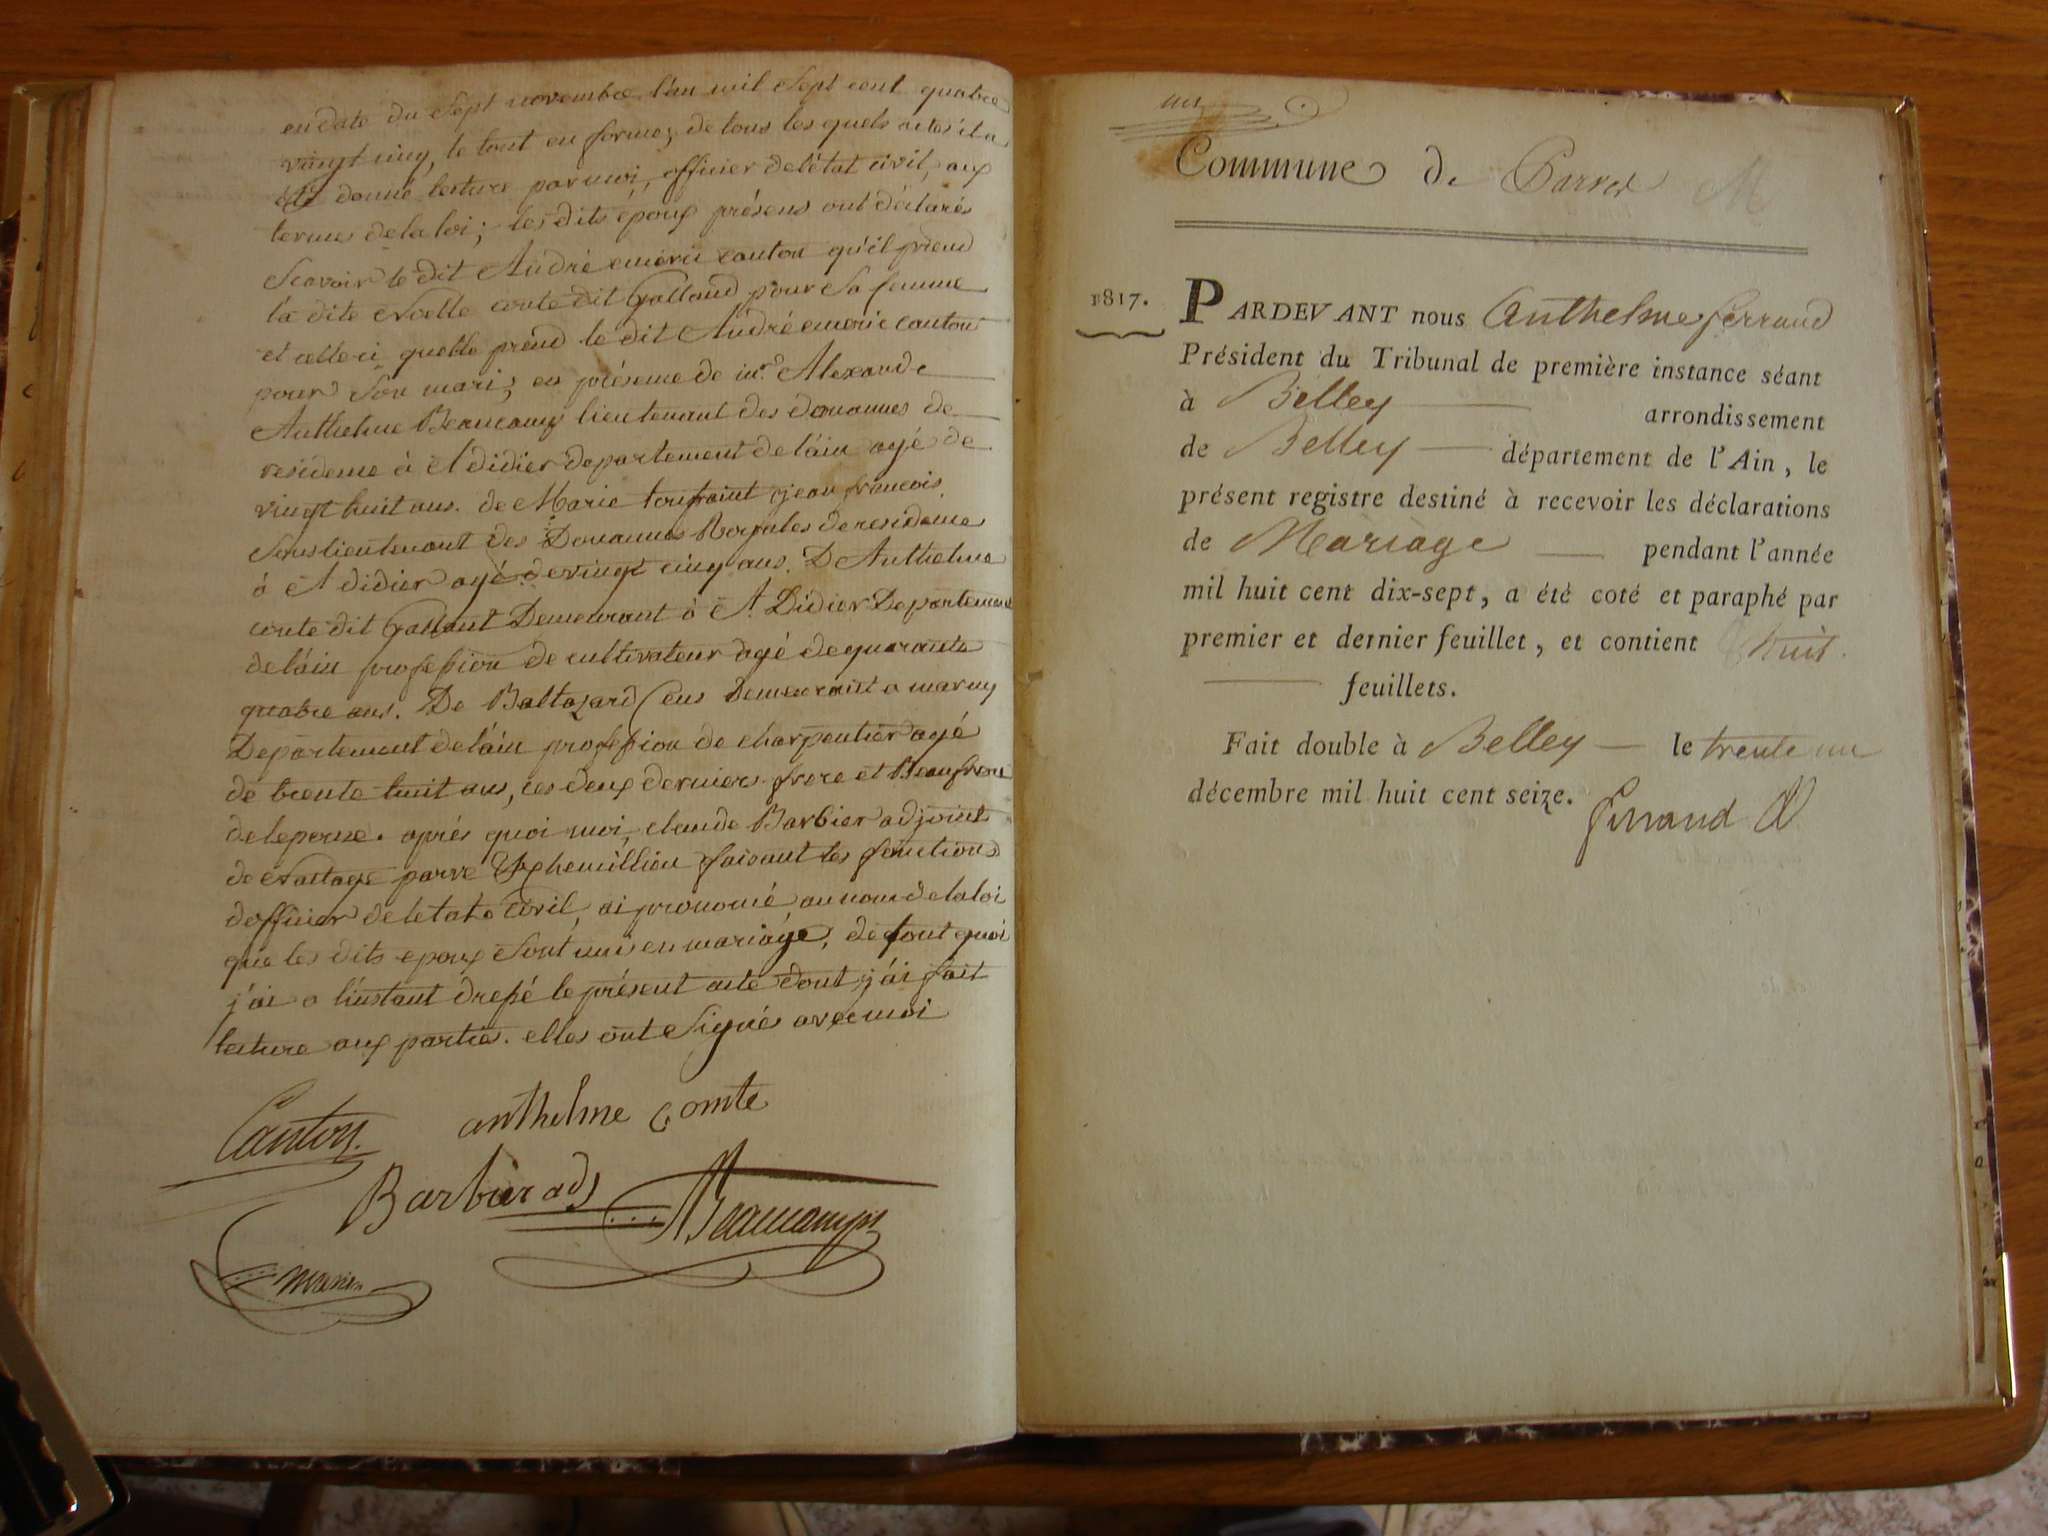 en date du Sept novembre l'an mil Sept cent quatre
vingt cinq, le tout en forme; de tous les quels actes il a
été donné lecture par moi, officier de l'état civil, aux
termes de la loi; les dits époux présens ont déclarés
Scavoir le dit André emeric canton qu'il prend
la dite comte dit Galland pour Sa femme
et celle ci quelle prend le dit André emeric canton
pour Son mari, en présence de mr. Alexandre
Anthelme Beaucamp lieutenant des douannes de
residence à St didier departement de láin agé de
vingt huit ans. de Marie toussaint jean francois
Sous lieutenant des Douannes Royales de residence
à St didier agé de vingt cinq ans. D Anthelme
comte dit Gallant Demeurant à St. Didier Departement
de láin profession de cultivateur agé de quarante
quatre ans. De Baltazard Demeurant a
Departement de láin profession de charpentier agé
de trente huit ans, ces deux derniers frere et Beaufrere
de lepouze. aprés quoi moi, claude Barbier adjoint
de parve faisant les fonctions
dofficier de letat Civil, ai prononcé au nom de la loi
que les dits epoux Sont unis en mariage, de tout quoi
j'ai a linstant dressé le présent acte dont j'ai fait
lecture aux parties. elles ont Signés avec moi
Canton anthelme Comte
Barbier adj Beaucamp
un
Commune de Parves M
1817. PARDEVANT nous Anthelme ferrand
Président du Tribunal de première instance séant
à Belley arrondissement
de Belley département de l'Ain, le
présent registre destiné à recevoir les déclarations
de Mariage pendant l'année
mil huit cent dix-sept, a été coté et paraphé par
premier et dernier feuillet, et contient huit
feuillets.
Fait double à Belley le trente un
décembre mil huit cent seize.
ferrand